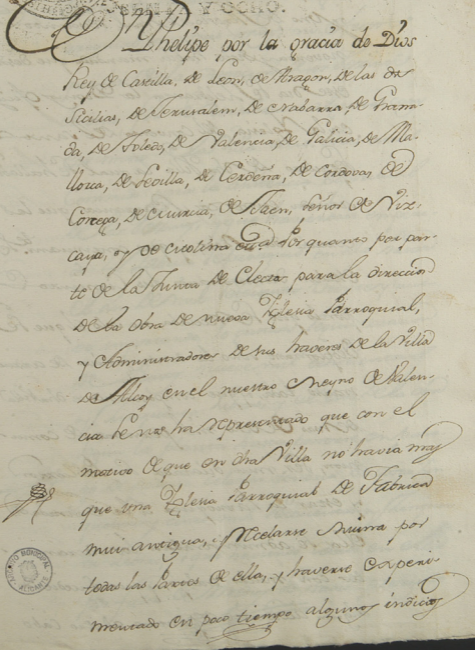 Y OCHO.
Phelipe por la gracia de Dios
Rey de Castilla, de Leon, de Aragon, de las dos
Sicilias, de Jerusalem, de Nabarra, de Grana-
da, de Toledo, de Valencia, de Galicia, de Ma-
llorca, de Sevilla, de Cerdeña, de Cordova, de
Corcega, de Murcia, de Jaen, Señor de Viz-
caya, y de Molina etta. Por quanto por par-
te de la Junta de Electos para la direccion
de la obra de nueva Iglesia Parroquial,
y Administradores de sus haveres de la Villa
de Alcoy en el nuestro Reyno de Valen-
cia se nos ha representado que con el
motivo de que en dha Villa no havia mas
que una Iglesia Parroquial de Fabrica
mui antigua, y rezelarse ruina por
todas las partes de ella, y haverse experi-
mentado en poco tiempo algunos indicios